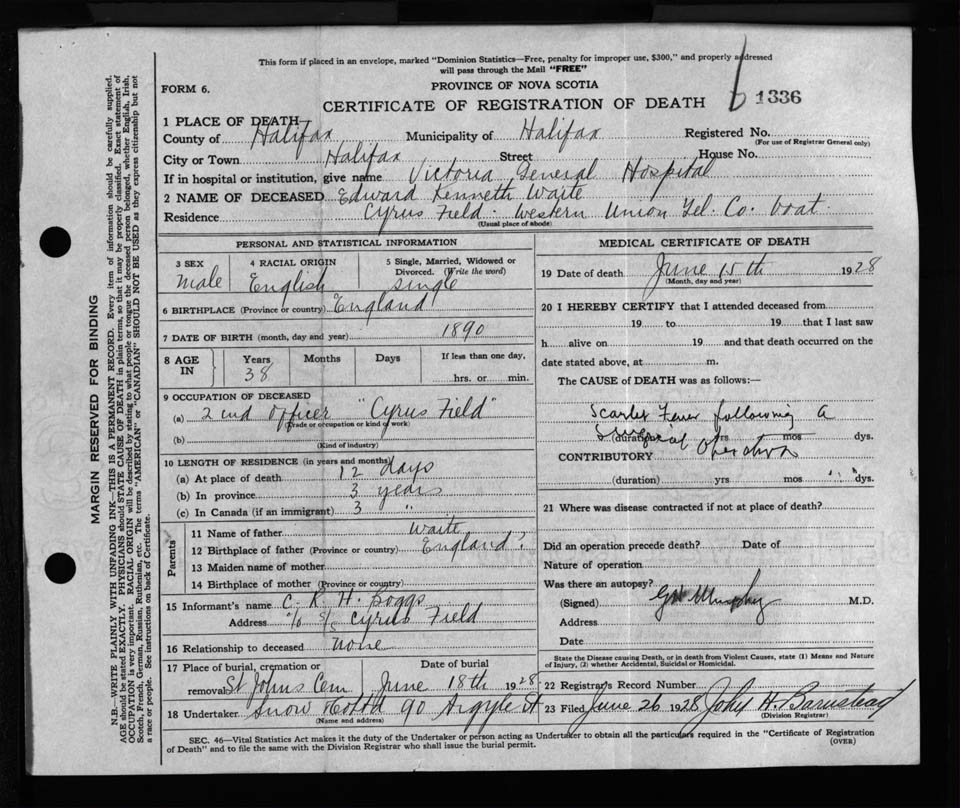 This form if placed in an envelope, marked "Dominion Statistics—Free, penalty for improper use, $300," and properly addressed
will pass through the Mail "FREE"
FORM 6.
PROVINCE OF NOVA SCOTIA
CERTIFICATE OF REGISTRATION OF DEATH 1336
1 PLACE OF DEATH
County of Halifax Municipality of Halifax Registered No.
(For use of Registrar General only)
City or Town Halifax Street House No.
If in hospital or institution, give name Victoria General Hospital
2 NAME OF DECEASED Edward Kenneth Waite
Residence Cyrus Field - Western Union Tel. Co. boat
(Usual place of abode)
PERSONAL AND STATISTICAL INFORMATION
3 SEX 4 RACIAL ORIGIN 5 Single, Married, Widowed or
Divorced. (Write the word)
Male English Single
6 BIRTHPLACE (Province or country) England
7 DATE OF BIRTH (month, day and year) 1890
8 AGE IN Years Months Days If less than one day,
38 hrs. or min.
9 OCCUPATION OF DECEASED
(a) 2nd Officer "Cyrus Field"
(Trade or occupation or kind of work)
(b)
(Kind of industry)
10 LENGTH OF RESIDENCE (in years and months)
(a) At place of death 12 days
(b) In province 3 years
(c) In Canada (if an immigrant) 3 "
Parents
11 Name of father Waite
12 Birthplace of father (Province or country) England?
13 Maiden name of mother
14 Birthplace of mother (Province or country)
15 Informant's name C. R. H. Boggs
Address c/o S/S Cyrus Field
16 Relationship to deceased None
17 Place of burial, cremation or Date of burial
removal St Johns Cem June 18th 1928
18 Undertaker Snow 90 Argyle St
(Name and address)
MEDICAL CERTIFICATE OF DEATH
19 Date of death June 15th 1928
(Month, day and year)
20 I HEREBY CERTIFY that I attended deceased from
19 to 19 that I last saw
h alive on 19 and that death occurred on the
date stated above, at m.
The CAUSE of DEATH was as follows:—
Scarlet Fever following a
Surgical Operation
(duration) yrs mos dys.
CONTRIBUTORY
(duration) yrs mos dys.
21 Where was disease contracted if not at place of death?
Did an operation precede death? Date of
Nature of operation
Was there an autopsy?
(Signed) Murphy M.D.
Address
Date
State the Disease causing Death, or in death from Violent Causes, state (1) Means and Nature
of Injury, (2) whether Accidental, Suicidal or Homicidal.
22 Registrar's Record Number
23 Filed June 26 1928 John H. Barnstead
(Division Registrar)
SEC. 46—Vital Statistics Act makes it the duty of the Undertaker or person acting as Undertaker to obtain all the particulars required in the "Certificate of Registration
of Death" and to file the same with the Division Registrar who shall issue the burial permit.
(OVER)
MARGIN RESERVED FOR BINDING
N.B.—WRITE PLAINLY WITH UNFADING INK—THIS IS A PERMANENT RECORD. Every item of information should be carefully supplied.
AGE should be stated EXACTLY. PHYSICIANS should STATE CAUSE OF DEATH in plain terms, so that it may be properly classified. Exact statement of
OCCUPATION is very important. RACIAL ORIGIN will be described by stating to what people or tongue the deceased person belonged, whether English, Irish,
Scotch, French, German, Russian, Ruthenian, etc. The terms "AMERICAN" or "CANADIAN" SHOULD NOT BE USED as they express citizenship but not
a race or people. See instructions on back of Certificate.